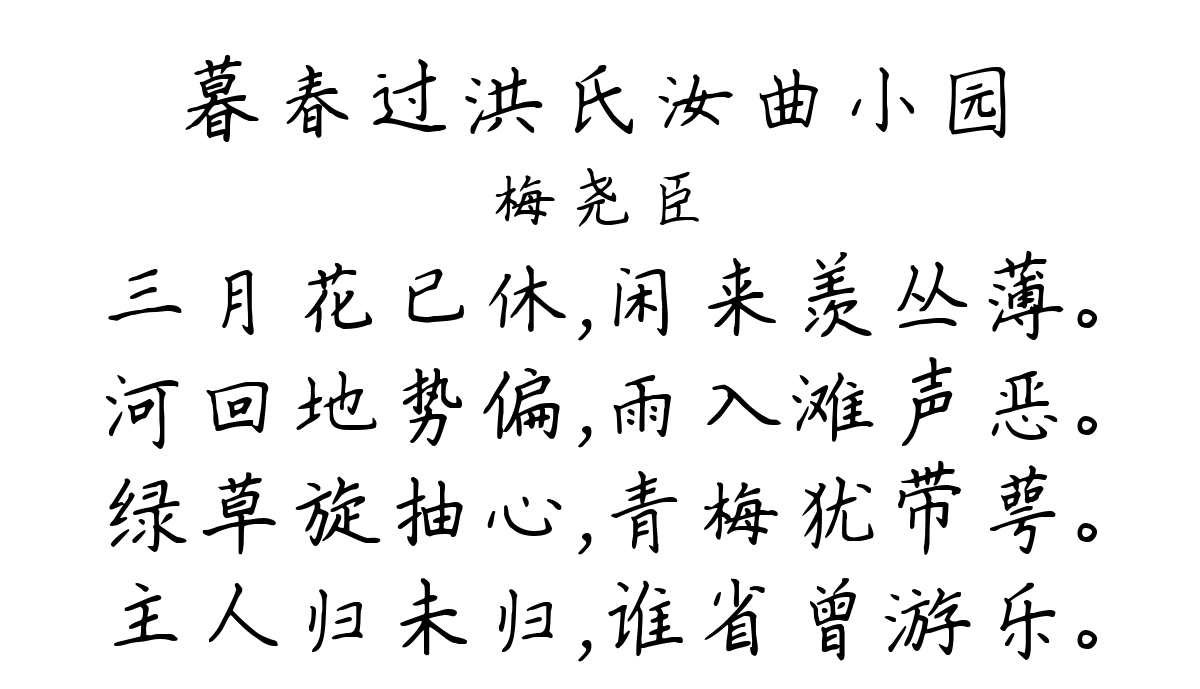 暮春过洪氏汝曲小园
梅尧臣
三月花已休,闲来羡丛薄。
河回地势偏,雨入滩声恶。
绿草旋抽心,青梅犹带萼。
主人归未归,谁省曾游乐。